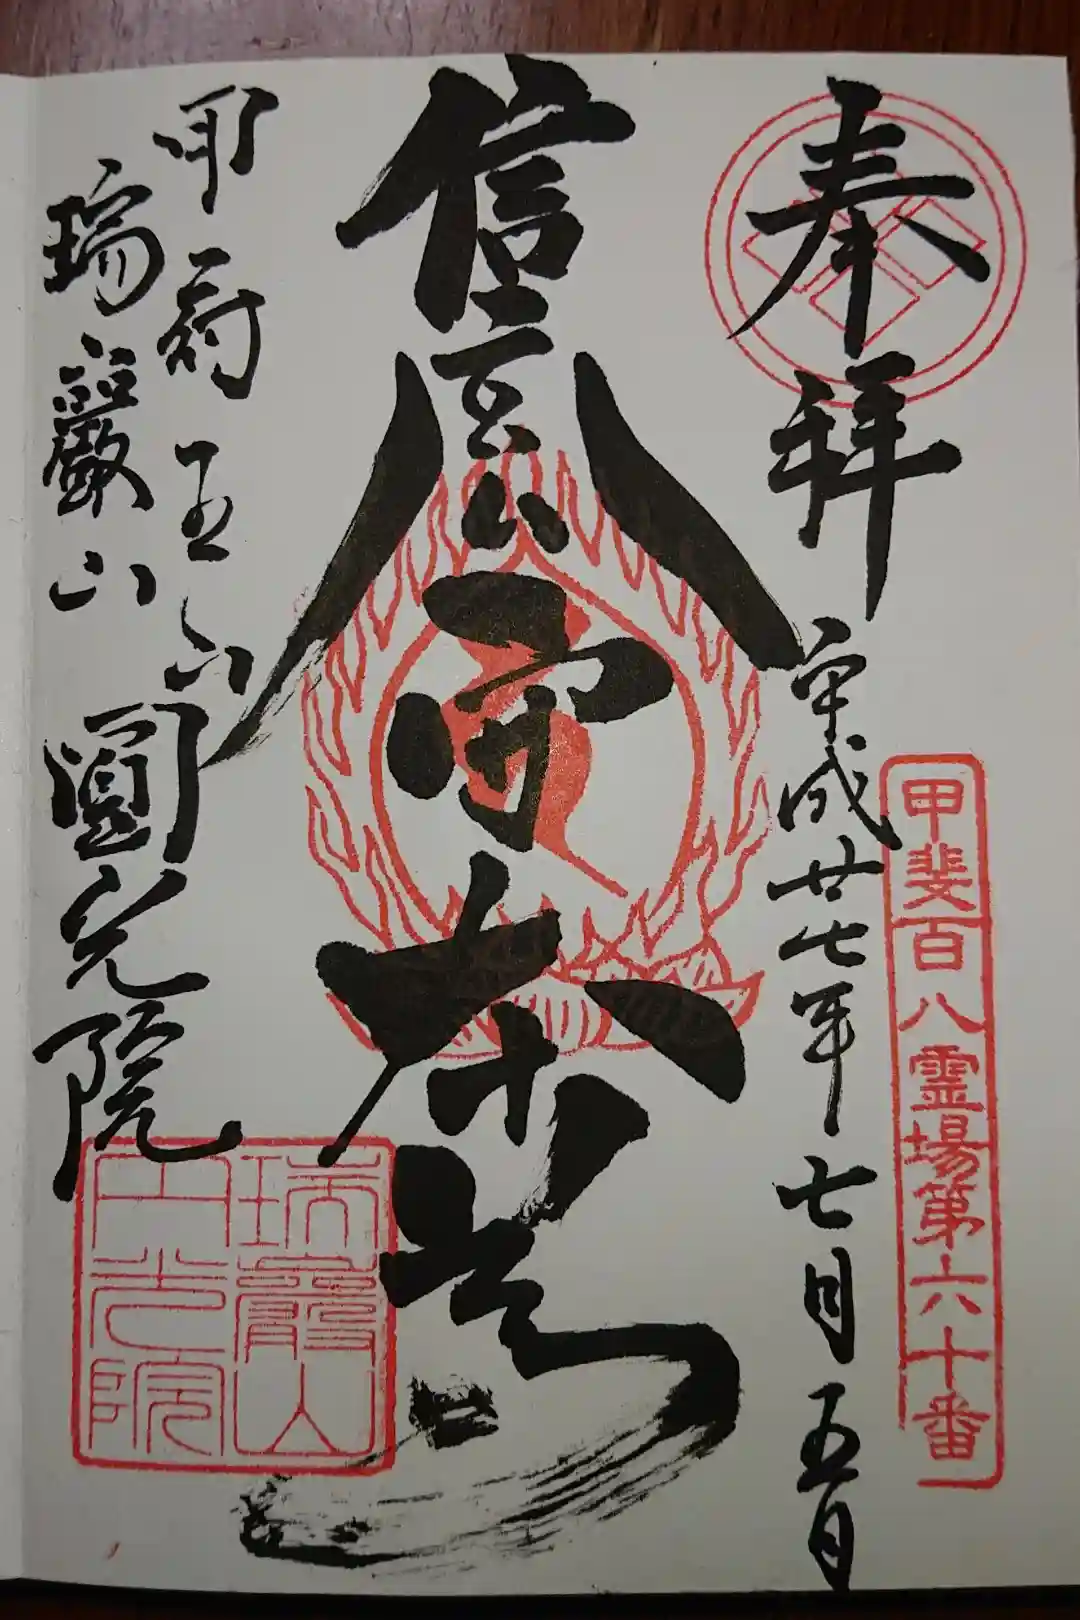 奉拝
平成廿七年七月五日
甲斐百八霊場第六十番
信玄公
本尊
甲府五山
瑞巖山 圓光院
瑞巖山
円光院